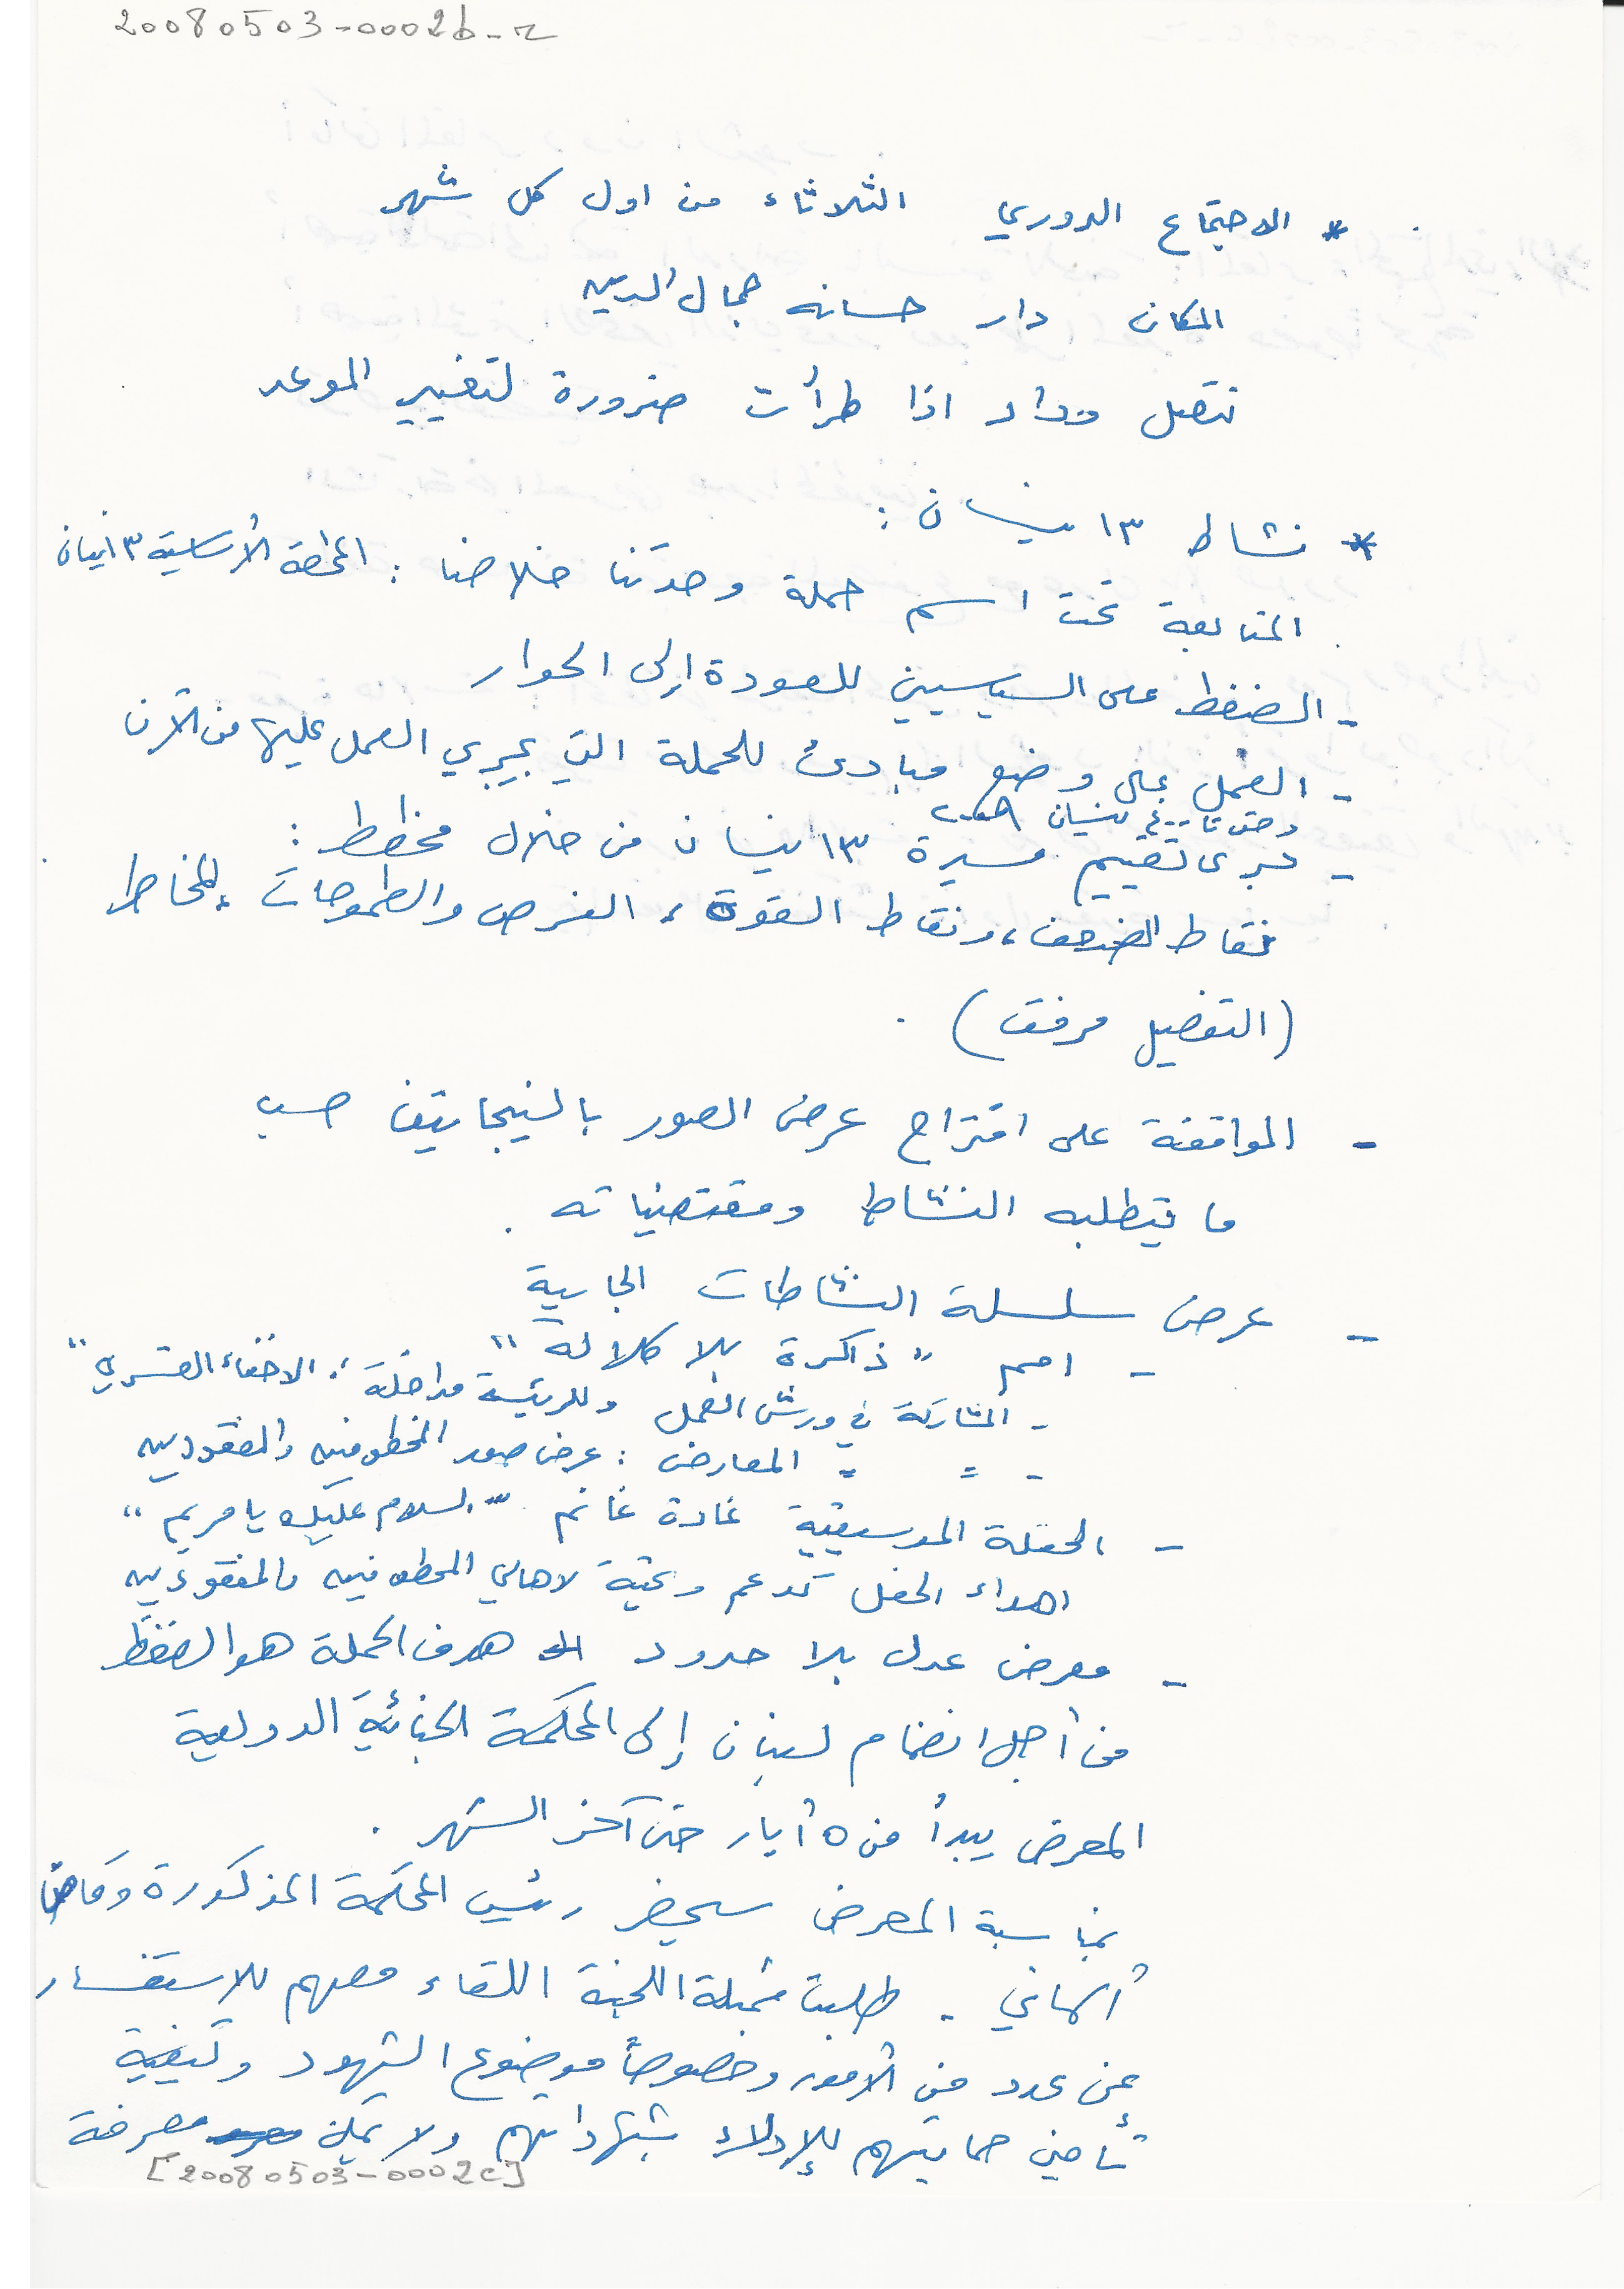 20080503-0002b-r
* الاجتماع الدوري الثلاثاء من اول كل شهر
المكان دار حسانه جمال الدين
نتصل وداد اذا طرأت ضرورة لتغيير الموعد
* نشاط ١٣ نيسان :
المتابعة تحت اسم حملة وحدتنا خلاصنا : المحطة الأساسية ١٣ نيسان
- الضغط على السياسيين للعودة إلى الحوار
- العمل على وضع مبادئ للحملة التي يجري العمل عليها من الآن
وحتى نيسان
- جرى تقييم مسيرة ١٣ نيسان من خلال مخطط :
نقاط الضعف، ونقاط القوة، الفرص والطموحات، المخاطر
(التفصيل مرفق) .
- الموافقة على اقتراح عرض الصور بالنيجاتيف حسب
ما يتطلبه النشاط ومقتضياته .
- عرض سلسلة النشاطات الجارية
- امم " ذاكرة بلا كلالة "
- المشاركة في ورش العمل وللرئيسة مداخلة : الاخفاء القسري "
- = = المعارض : عرض صور المخطوفين والمفقودين
- الحفلة الموسيقية غادة غانم " السلام عليك يا مريم "
اهداء الحفل كدعم وتحية لاهالي المخطوفين والمفقودين
- معرض عدل بلا حدود هدف الحملة هو الضغط
من أجل انضمام لبنان إلى المحكمة الجنائية الدولية
المعرض يبدأ من ٥ أيار حتى آخر الشهر .
بمناسبة المعرض سيحضر رئيس المحكمة المذكورة وقاض
ألماني . طلبت ممثلة اللجنة اللقاء معهم للاستفسار
عن عدد من الأمور وخصوصاً موضوع الشهود وكيفية
تأمين حمايتهم للإدلاء بشهاداتهم ولا يمكن معرفة
[20080503-0002c]